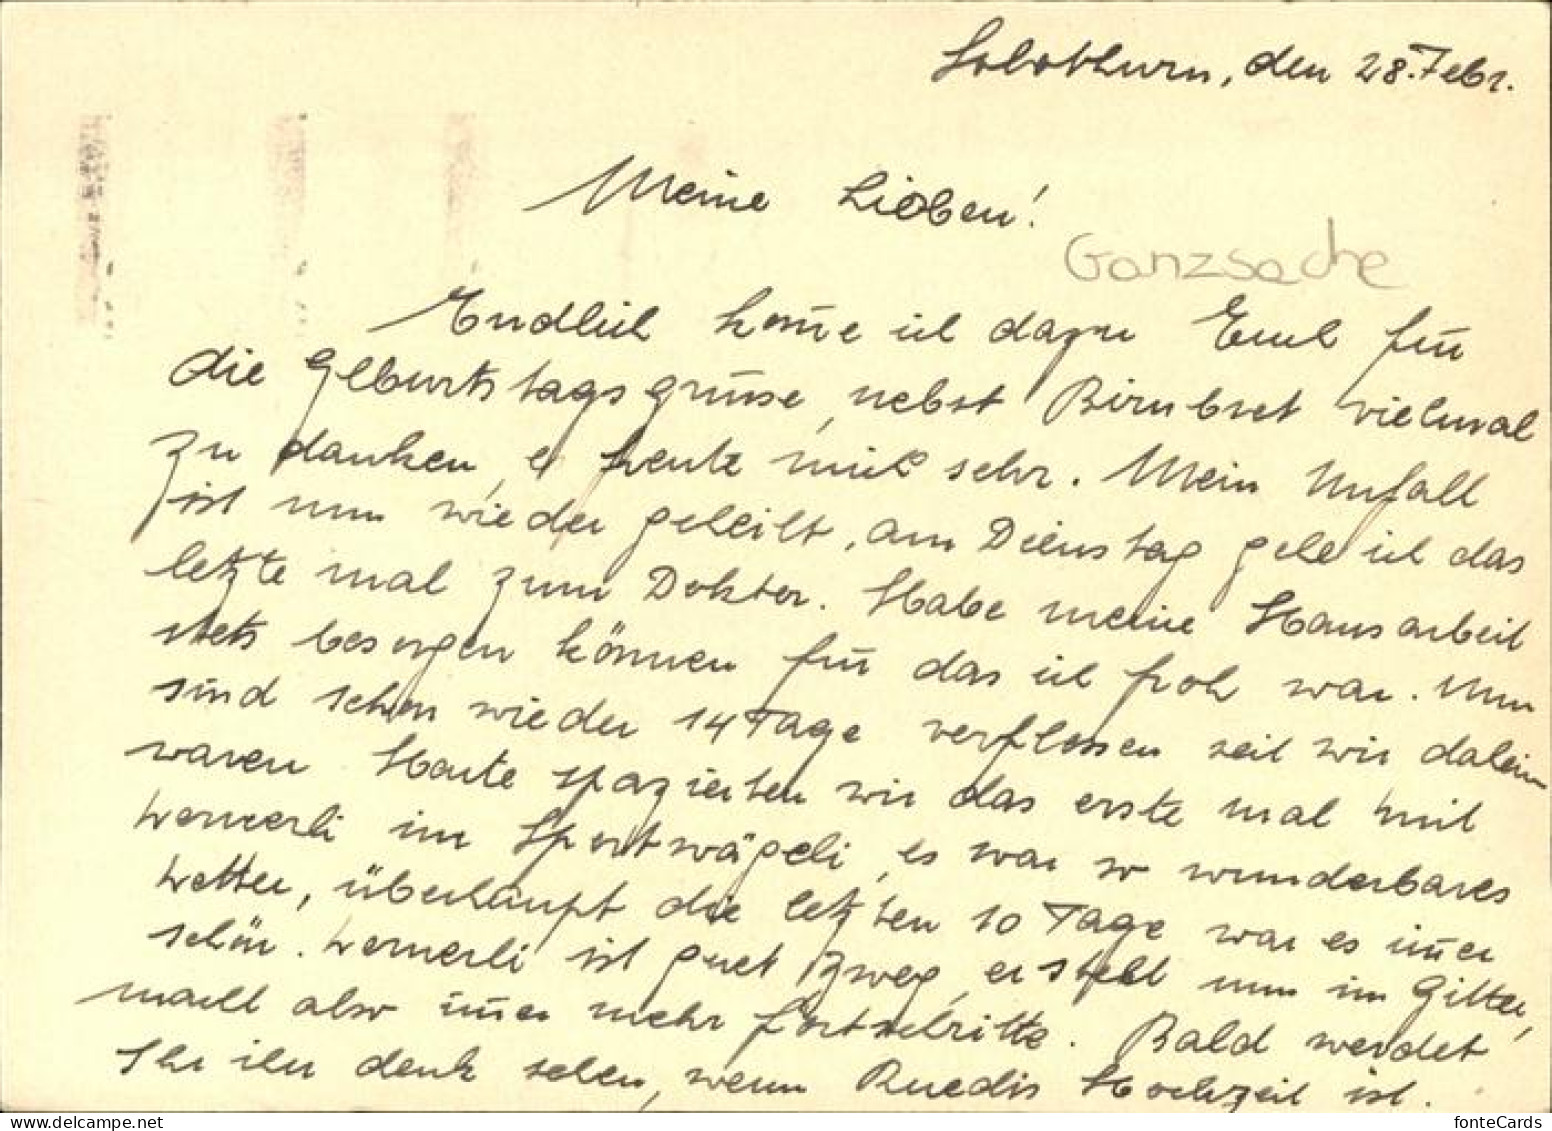 Solothurn, den 28. Febr.
Meine Lieben!
Ganzsache
Endlich kom̄e ich dazu Euch für
die Geburtstagsgrüsse, nebst Birnbrot vielmal
zu danken, es freute mich sehr. Mein Unfall
ist nun wieder geheilt, am Dienstag gehe ich das
letzte mal zum Doktor. Habe meine Hausarbeit
stets besorgen können für das ich froh war. Nun
sind schon wieder 14 Tage verflossen seit wir daheim
waren. Heute spazierten wir das erste mal mit
Wernerli im Sportwägeli, es war so wunderbares
Wetter, überhaupt die letzten 10 Tage war es im̄er
schön. Wernerli ist guet zweg, er steht nun im Gitter,
macht also im̄er mehr Fortschritte. Bald werdet
Ihr ihn denk sehen, wenn Ruedis Hochzeit ist.
fonteCards